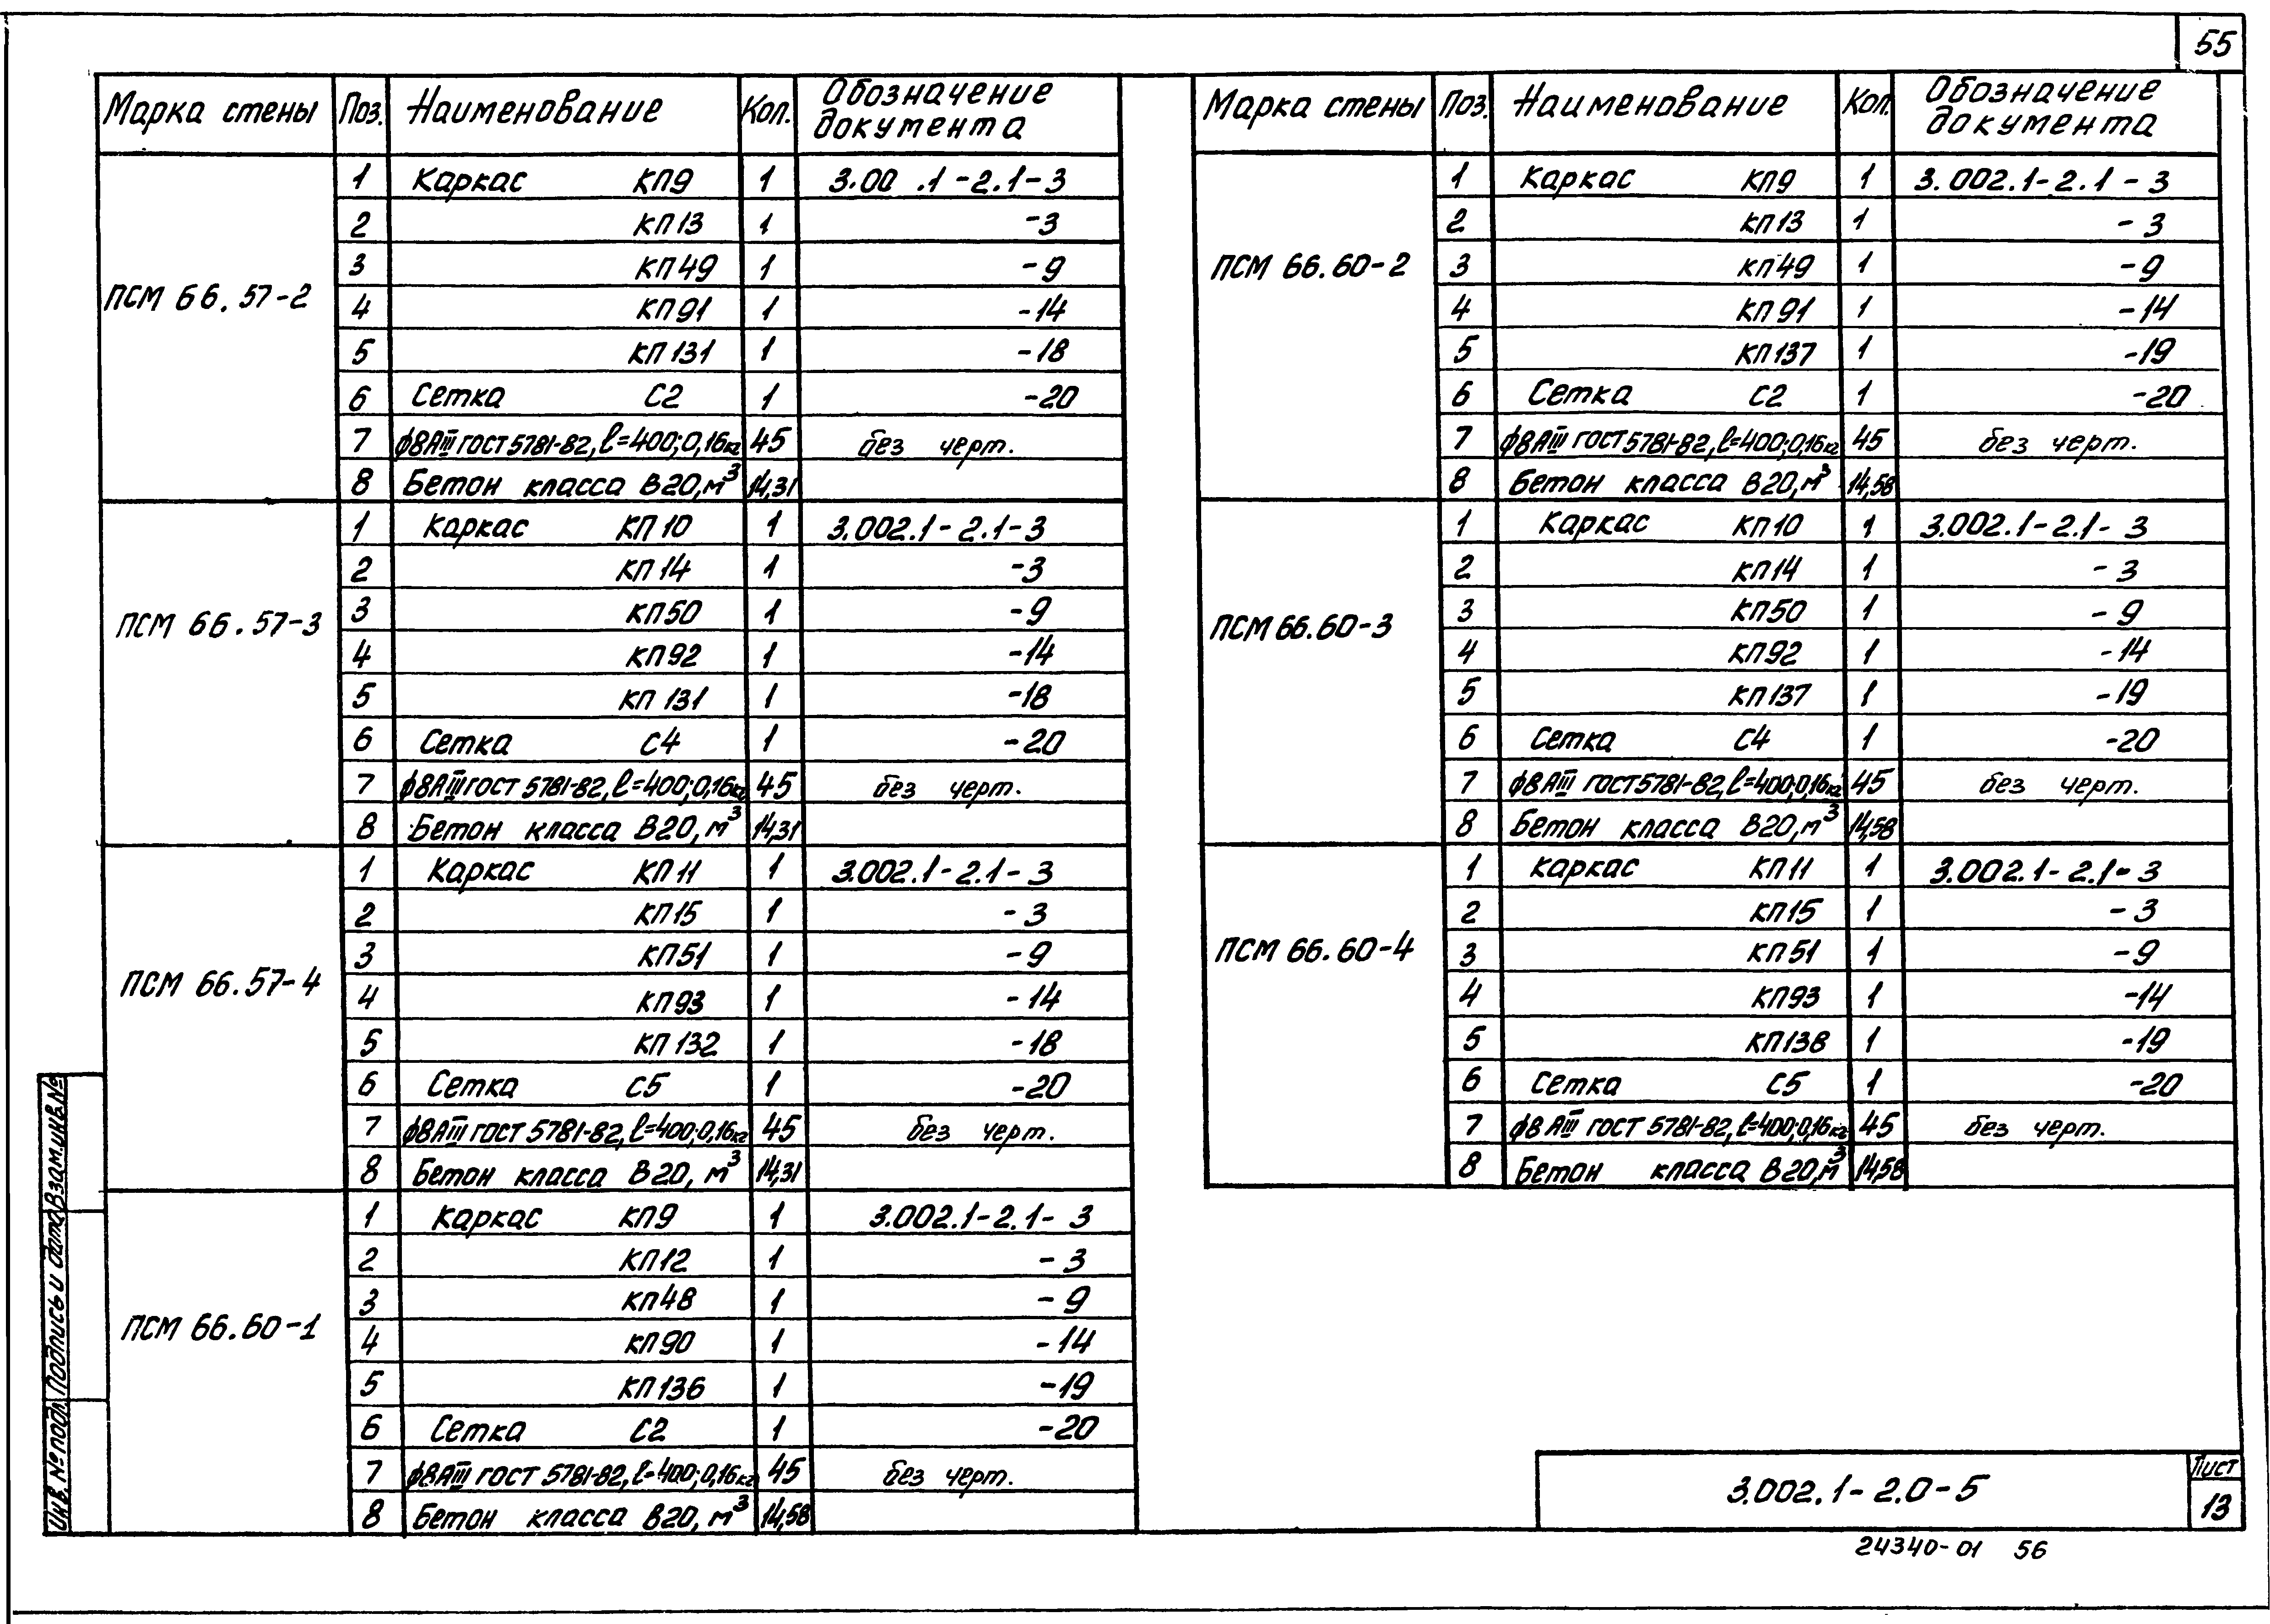 55
Марка стены Поз. Наименование Кол. Обозначение документа
ПСМ 66.57-2
1 Каркас КП9 1 3.00 .1-2.1-3
2 КП13 1 -3
3 КП49 1 -9
4 КП91 1 -14
5 КП131 1 -18
6 Сетка С2 1 -20
7 ф8АIII ГОСТ 5781-82, ℓ=400; 0,16кг 45 без черт.
8 Бетон класса В20, м³ 14,31
ПСМ 66.57-3
1 Каркас КП10 1 3.002.1-2.1-3
2 КП14 1 -3
3 КП50 1 -9
4 КП92 1 -14
5 КП131 1 -18
6 Сетка С4 1 -20
7 ф8АIII ГОСТ 5781-82, ℓ=400; 0,16кг 45 без черт.
8 Бетон класса В20, м³ 14,31
ПСМ 66.57-4
1 Каркас КП11 1 3.002.1-2.1-3
2 КП15 1 -3
3 КП51 1 -9
4 КП93 1 -14
5 КП132 1 -18
6 Сетка С5 1 -20
7 ф8АIII ГОСТ 5781-82, ℓ=400; 0,16кг 45 без черт.
8 Бетон класса В20, м³ 14,31
ПСМ 66.60-1
1 Каркас КП9 1 3.002.1-2.1-3
2 КП12 1 -3
3 КП48 1 -9
4 КП90 1 -14
5 КП136 1 -19
6 Сетка С2 1 -20
7 ф8АIII ГОСТ 5781-82, ℓ=400; 0,16кг 45 без черт.
8 Бетон класса В20, м³ 14,58
Марка стены Поз. Наименование Кол. Обозначение документа
ПСМ 66.60-2
1 Каркас КП9 1 3.002.1-2.1-3
2 КП13 1 -3
3 КП49 1 -9
4 КП91 1 -14
5 КП137 1 -19
6 Сетка С2 1 -20
7 ф8АIII ГОСТ 5781-82, ℓ=400; 0,16кг 45 без черт.
8 Бетон класса В20, м³ 14,58
ПСМ 66.60-3
1 Каркас КП10 1 3.002.1-2.1-3
2 КП14 1 -3
3 КП50 1 -9
4 КП92 1 -14
5 КП137 1 -19
6 Сетка С4 1 -20
7 ф8АIII ГОСТ 5781-82, ℓ=400; 0,16кг 45 без черт.
8 Бетон класса В20, м³ 14,58
ПСМ 66.60-4
1 Каркас КП11 1 3.002.1-2.1-3
2 КП15 1 -3
3 КП51 1 -9
4 КП93 1 -14
5 КП138 1 -19
6 Сетка С5 1 -20
7 ф8АIII ГОСТ 5781-82, ℓ=400; 0,16кг 45 без черт.
8 Бетон класса В20, м³ 14,58
Инв.№ подл. Подпись и дата Взам.инв.№
3.002.1-2.0-5
Лист
13
24340-01 56